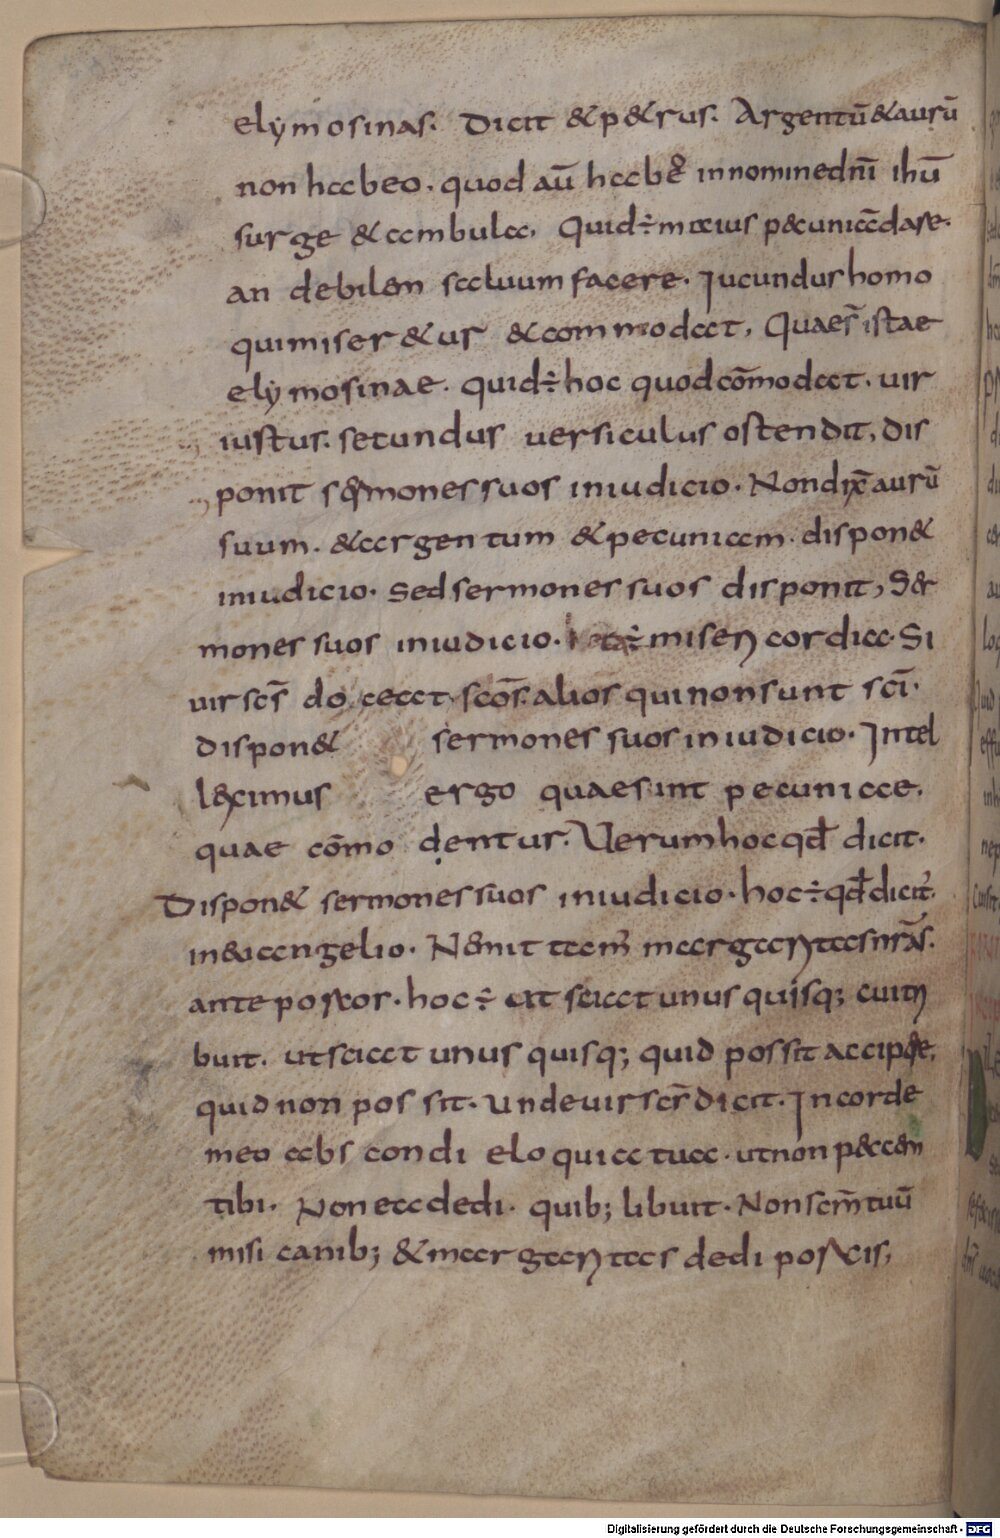 elymosinas. Dicit & p&rus. Argentū & aurū
non habeo. quod aū habeo in nomine dn̄i ihū
surge & ambula. Quid ÷ maius pecuniā dare.
an debilem saluum facere. Iucundus homo
qui miser&ur & commodat. Quae sͭ istae
elymosinae. quid ÷ hoc quod cōmodat. uir
iustus. secundus uersiculus ostendit, dis
ponit sermones suos in iudicio. Non dix̄ aurū
suum. & argentum & pecuniam. dispon&
in iudicio. Sed sermones suos disponit, Ser
mones suos in iudicio. ÷ misericordia. Si
uir scs̄ docecat scōs. alios qui non sunt scī.
dispon& sermones suos in iudicio. Intel
leximus ergo quae sint pecuniae.
quae cōmodentur. Uerum hoc qđ dicit.
Dispon& sermones suos in iudicio. hoc ÷ qđ dicit̄.
in euangelio. Nemit tam̄ margaritas nr̄as.
ante porcos. hoc ÷ ut sciat unus quisq; cui tri
buit. ut sciat unus quisq; quid possit accipere,
quid non possit. Unde uir scs̄ dicit. In corde
meo abscondi eloquia tua. ut non peccem
tibi. Non ea dedi. quib; libuit. Non scm̄ tuū
misi canib; & margaritas dedi porcis,
Digitalisierung gefördert durch die Deutsche Forschungsgemeinschaft - DFG